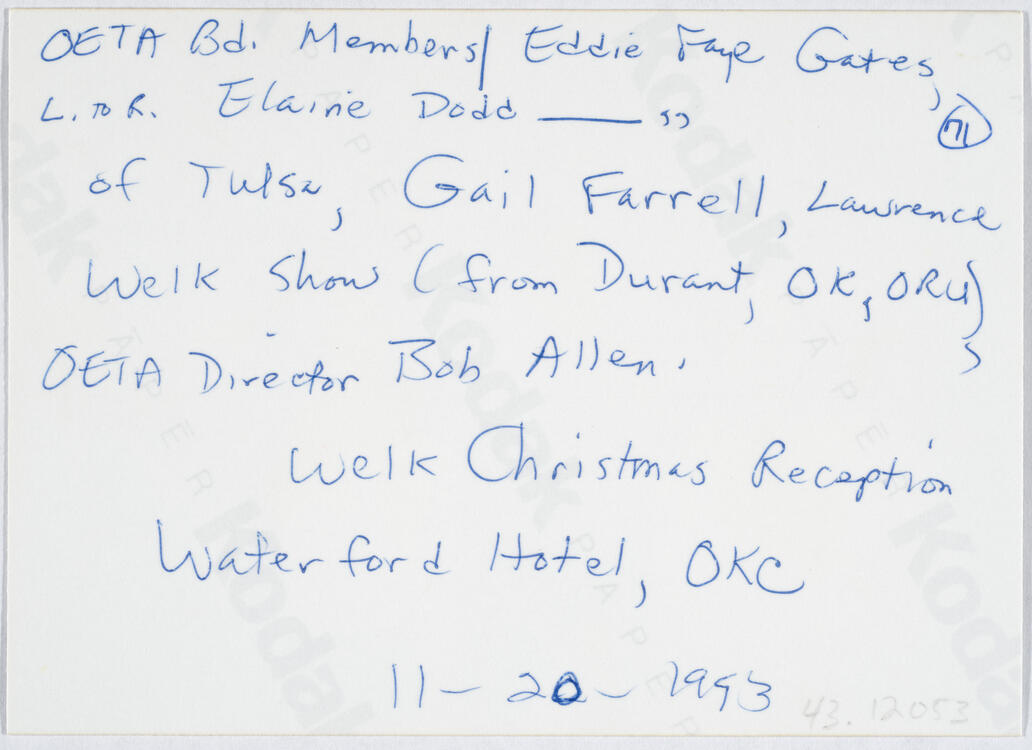 OETA Bd. Members/ Eddie Faye Gates,
L. to R. Elaine Dodd —— ,, 71
of Tulsa, Gail Farrell, Lawrence
Welk Show (from Durant, OK, ORU),
OETA Director Bob Allen.
Welk Christmas Reception
Waterford Hotel, OKC
11-20-1993
43.12053